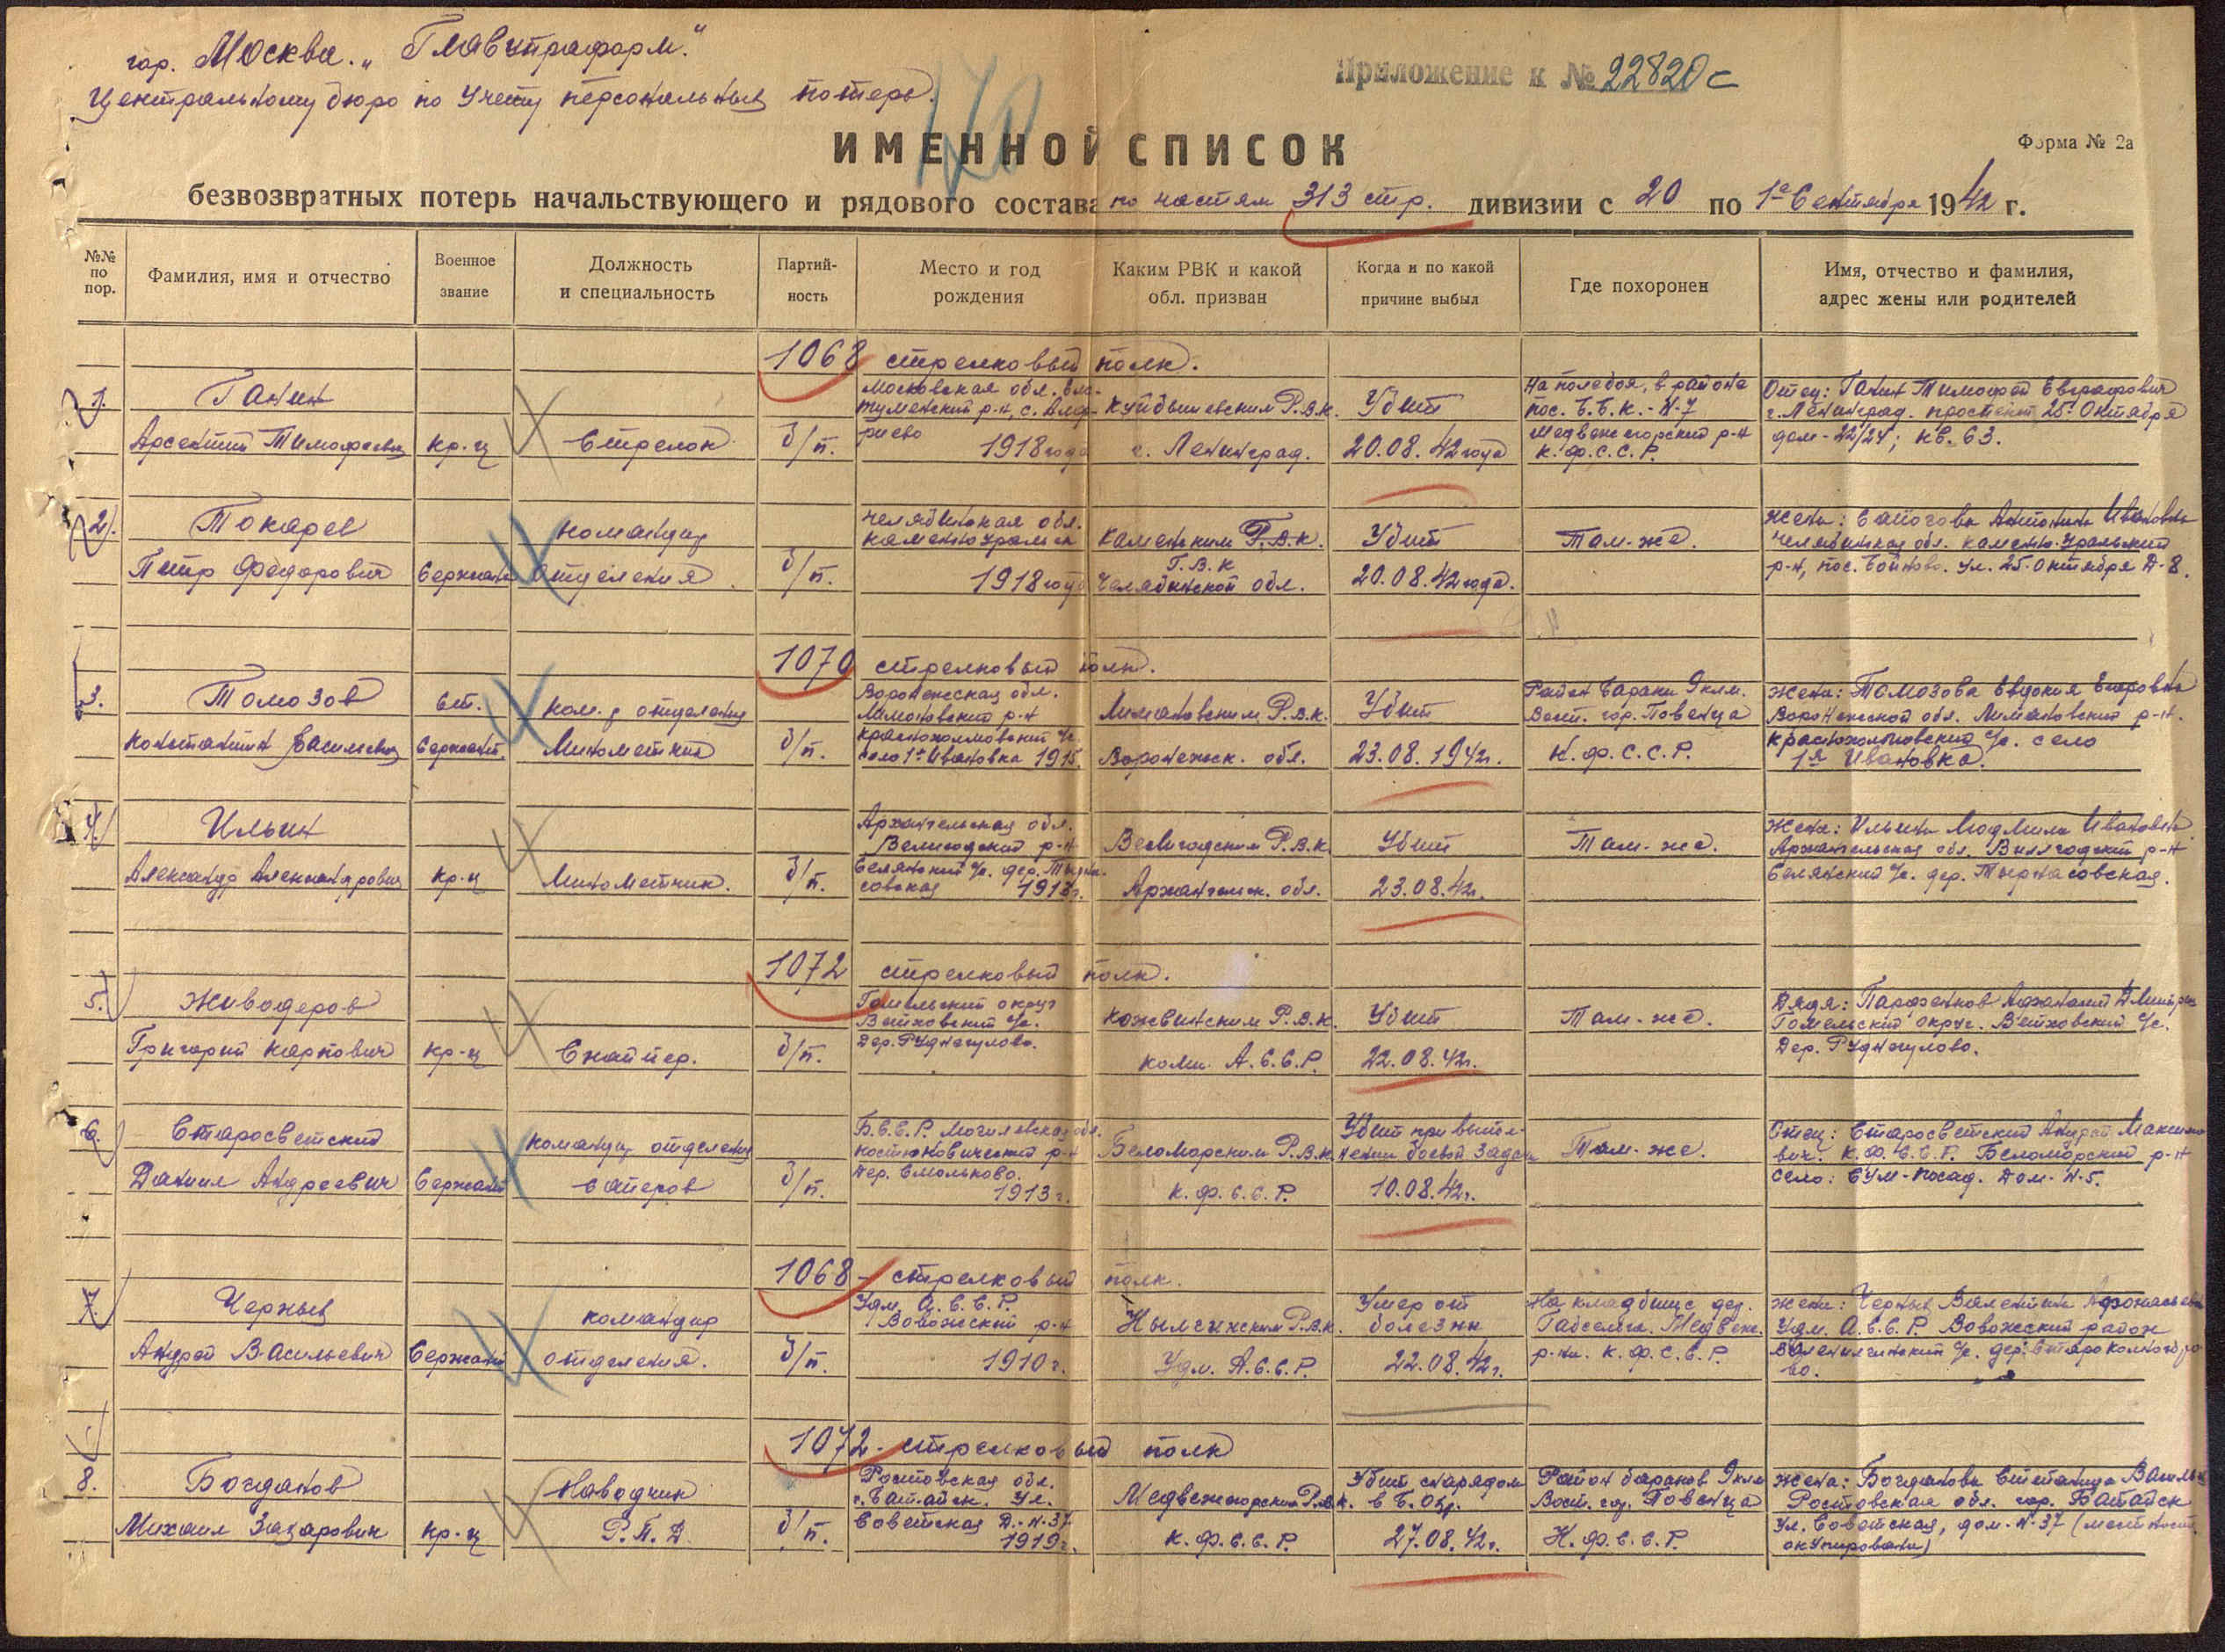 гор. Москва. „Главупраформ."
Центральному бюро по учету персональных потерь.
Приложение к № 22820с
ИМЕННОЙ СПИСОК
Форма № 2а
безвозвратных потерь начальствующего и рядового состава по частям 313 стр. дивизии с 20 по 1е Сентября 1942 г.
№№ по пор.
Фамилия, имя и отчество
Военное звание
Должность и специальность
Партий-ность
Место и год рождения
Каким РВК и какой обл. призван
Когда и по какой причине выбыл
Где похоронен
Имя, отчество и фамилия, адрес жены или родителей
1068 стрелковый полк.
1.
Ганин
Арсентий Тимофеевич
кр-ц
Стрелок
б/п.
Московская обл.
р-н, с.
1918 года
Куйбышевским Р.В.К.
г. Ленинград.
Убит
20.08.42 года
На поле боя, в районе
пос. Б.Б.К. - N-7
Медвежегорский р-н
К.Ф.С.С.Р.
Отец: Ганин Тимофей Евграфович
г. Ленинград. проспект 25го Октября
дом - 22/24; кв. 63.
2.
Токарев
Петр Федорович
Сержант
командир
отделения
б/п.
Челябинская обл.
Каменноуральск
1918 года
Каменским Г.В.К.
Г.В.К
Челябинской обл.
Убит
20.08.42 года.
Там-же.
жена: Антонина Ивановна
Челябинская обл. Каменно-Уральский
р-н, пос. ул. 25-Октября Д-8.
1070 стрелковый полк.
3.
Томозов
Константин Васильевич
Ст.
Сержант.
ком-р отделения
Минометчик
б/п.
Воронежская обл.
Лимановский р-н
Краснохолмовский с/с.
село 1я Ивановка 1915
Лимановским Р.В.К.
Воронежск. обл.
Убит
23.08.1942г.
Район Бараки 9 клм.
Вост. гор. Повенца
К.Ф.С.С.Р.
жена: Томозова Евдокия Егоровна
Воронежской обл. Лимановский р-н.
Краснохолмовский с/с. село
1я Ивановка.
4.
Ильин
Александр Александрович
кр-ц
Минометчик.
б/п.
Архангельская обл.
р-н
Селянский с/с. дер.
Р.В.К.
Архангельск. обл.
Убит
23.08.42г.
Там-же.
жена: Ильина Людмила Ивановна
Архангельская обл. Вилегодский р-н
Селянский с/с. дер. Тырнасовская.
1072 стрелковый полк.
5.
Живодеров
Григорий Карпович
кр-ц
Снайпер.
б/п.
Гомельский округ
Ветковский с/с.
Дер.
Кожвинским Р.В.К.
Коми А.С.С.Р.
Убит
22.08.42г.
Там-же.
Дядя: Парфенков
Гомельский округ. Ветковский с/с.
Дер.
6.
Старосветский
Даниил Андреевич
Сержант
командир отделения
Саперов
б/п.
Б.С.С.Р. Могилевская обл.
Костюковический р-н
Дер. Смольково.
1913г.
Беломорским Р.В.К.
К.Ф.С.С.Р.
Убит при выпол-
нении боевой задачи
10.08.42г.
Там-же.
Отец: Старосветский Андрей Максимо-
вич. К.Ф.С.С.Р. Беломорский р-н
Село: Сум-посад. Дом-N-5.
1068 - стрелковый полк.
7.
Черных
Андрей Васильевич
Сержант
командир
отделения.
б/п.
Удм. А.С.С.Р.
Вовожский р-н
1910г.
Р.В.К.
Удм. А.С.С.Р.
Умер от
болезни
22.08.42г.
На кладбище дер.
Габсельга. Медвеж.
р-на. К.Ф.С.С.Р.
жена: Черных Валентина Афонасьевна
Удм. А.С.С.Р. Вовожский район
с/с. дер.
во.
1072 - стрелковый полк
8.
Богданов
Михаил Захарович
кр-ц
Наводчик
Р.П.Д.
б/п.
Ростовская обл.
г. Батайск. Ул.
Советская Д.-N-37
1919г.
Медвежегорским Р.В.К.
К.Ф.С.С.Р.
Убит снарядом
27.08.42г.
Район бараков 9 клм
Вост. гор. Повенца
К.Ф.С.С.Р.
жена: Богданова Степанида
Ростовская обл. гор. Батайск
Ул. Советская, дом-N-37